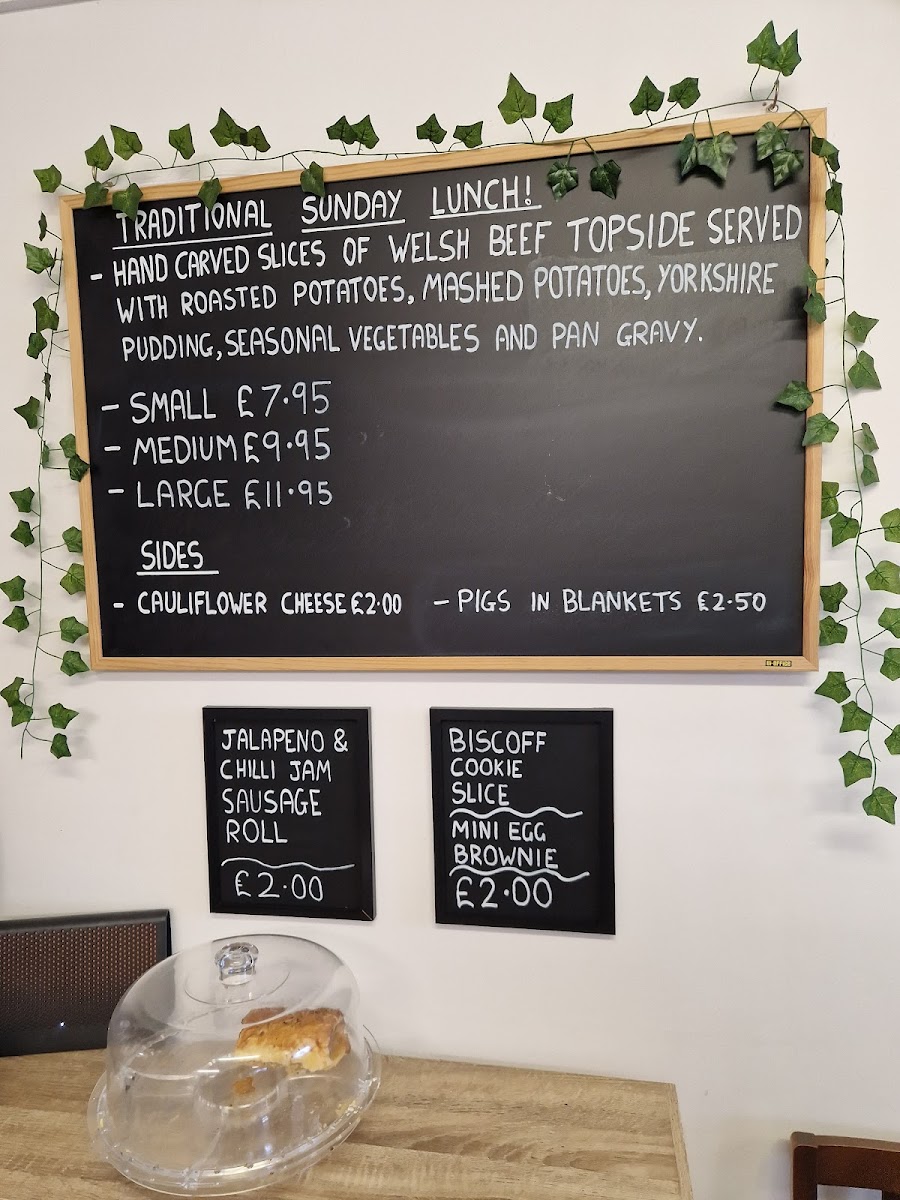 TRADITIONAL SUNDAY LUNCH!
- HAND CARVED SLICES OF WELSH BEEF TOPSIDE SERVED
WITH ROASTED POTATOES, MASHED POTATOES, YORKSHIRE
PUDDING, SEASONAL VEGETABLES AND PAN GRAVY.
- SMALL £7.95
- MEDIUM £9.95
- LARGE £11.95
SIDES
- CAULIFLOWER CHEESE £2.00 - PIGS IN BLANKETS £2.50
JALAPENO &
CHILLI JAM
SAUSAGE
ROLL
£2.00
BISCOFF
COOKIE
SLICE
MINI EGG
BROWNIE
£2.00